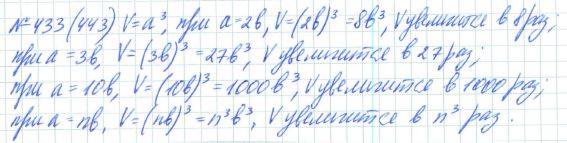 № 433 (443) V = a³, при a = 2в, V = (2в)³ = 8в³, V увеличится в 8 раз;
при a = 3в, V = (3в)³ = 27в³, V увеличится в 27 раз;
при a = 10в, V = (10в)³ = 1000в³, V увеличится в 1000 раз;
при a = nв, V = (nв)³ = n³в³, V увеличится в n³ раз.